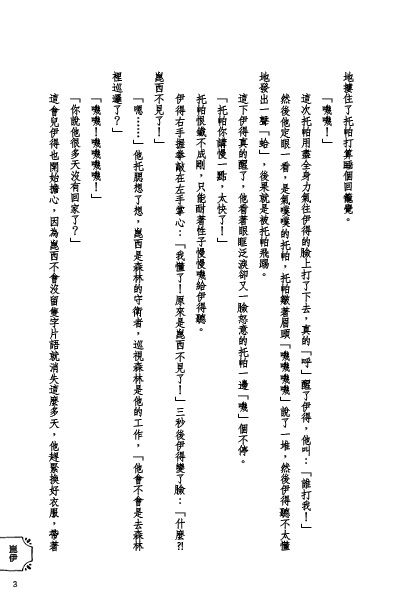 地摟住了托帕打算睡個回籠覺。
「嘰嘰！」
這次托帕用盡全身力氣往伊得的臉上打了下去，真的「呼」醒了伊得，他叫：「誰打我！」
然後他定眼一看，是氣噗噗的托帕，托帕皺著眉頭「嘰嘰嘰嘰」說了一堆，然後伊得聽不太懂
地發出一聲「蛤」，後果就是被托帕飛踢。
這下伊得真的醒了，他看著眼眶泛淚卻又一臉怒意的托帕一邊「嘰」個不停。
「托帕你講慢一點，太快了！」
托帕恨鐵不成剛，只能耐著性子慢慢嘰給伊得聽。
伊得右手握拳敲在左手掌心：「我懂了！原來是崑西不見了！」三秒後伊得變了臉：「什麼?!
崑西不見了！」
「嗯……」他托腮想了想，崑西是森林的守衛者，巡視森林是他的工作，「他會不會是去森林
裡巡邏了？」
「嘰嘰！嘰嘰嘰嘰！」
「你說他很多天沒有回家了？」
這會兒伊得也開始擔心，因為崑西不會沒留隻字片語就消失這麼多天，他趕緊換好衣服，帶著
崑伊
3